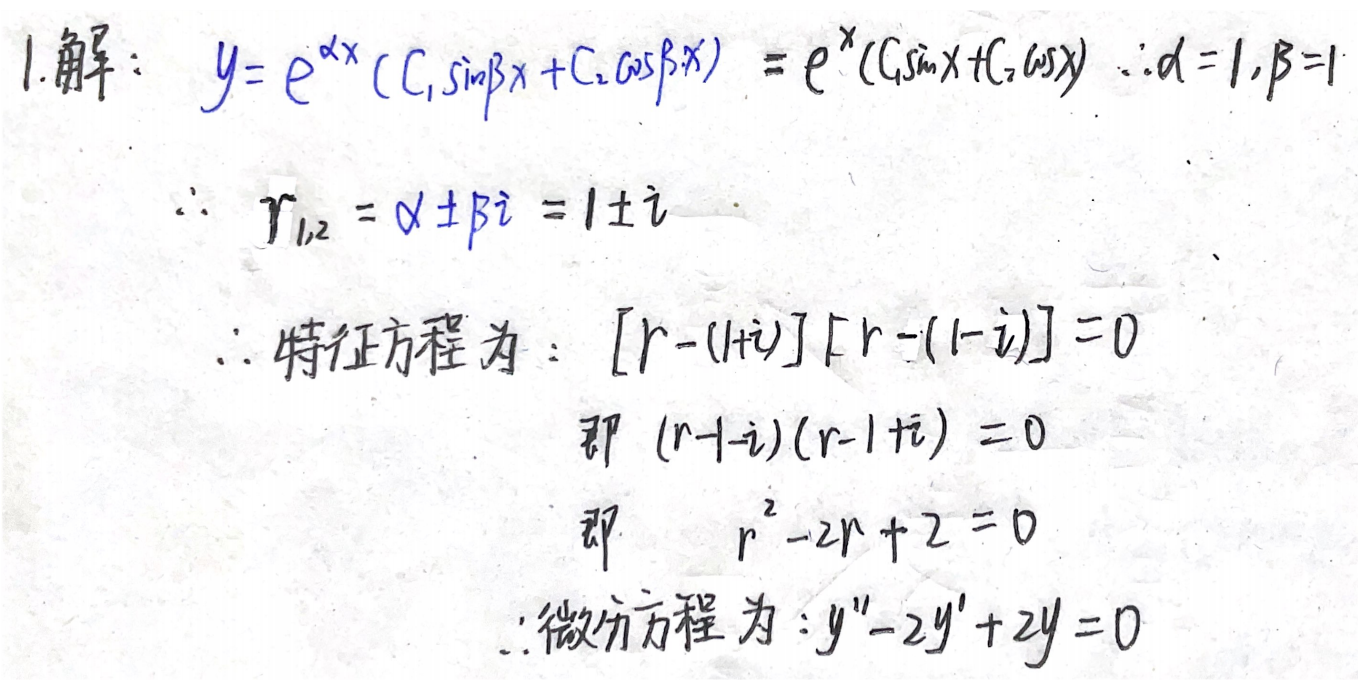 1.解： y = e^{αx} (C₁ sinβx + C₂ cosβx) = e^x (C₁ sinx + C₂ cosx) ∴ α = 1, β = 1
∴ r₁,₂ = α ± βi = 1 ± i
∴ 特征方程为： [r - (1+i)] [r - (1-i)] = 0
即 (r-1-i)(r-1+i) = 0
即 r² - 2r + 2 = 0
∴ 微分方程为：y'' - 2y' + 2y = 0